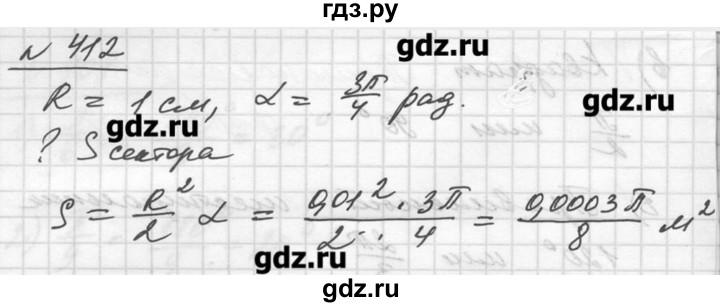 гдз.ру
N 412
gdz.ru
R = 1 см, α = 3π/4 рад.
gdz.ru
gdz.ru
? S сектора
S = R²/2 α = 0,01² · 3π / 2 · 4 = 0,0003π / 8 м²
gdz.ru
gdz.ru